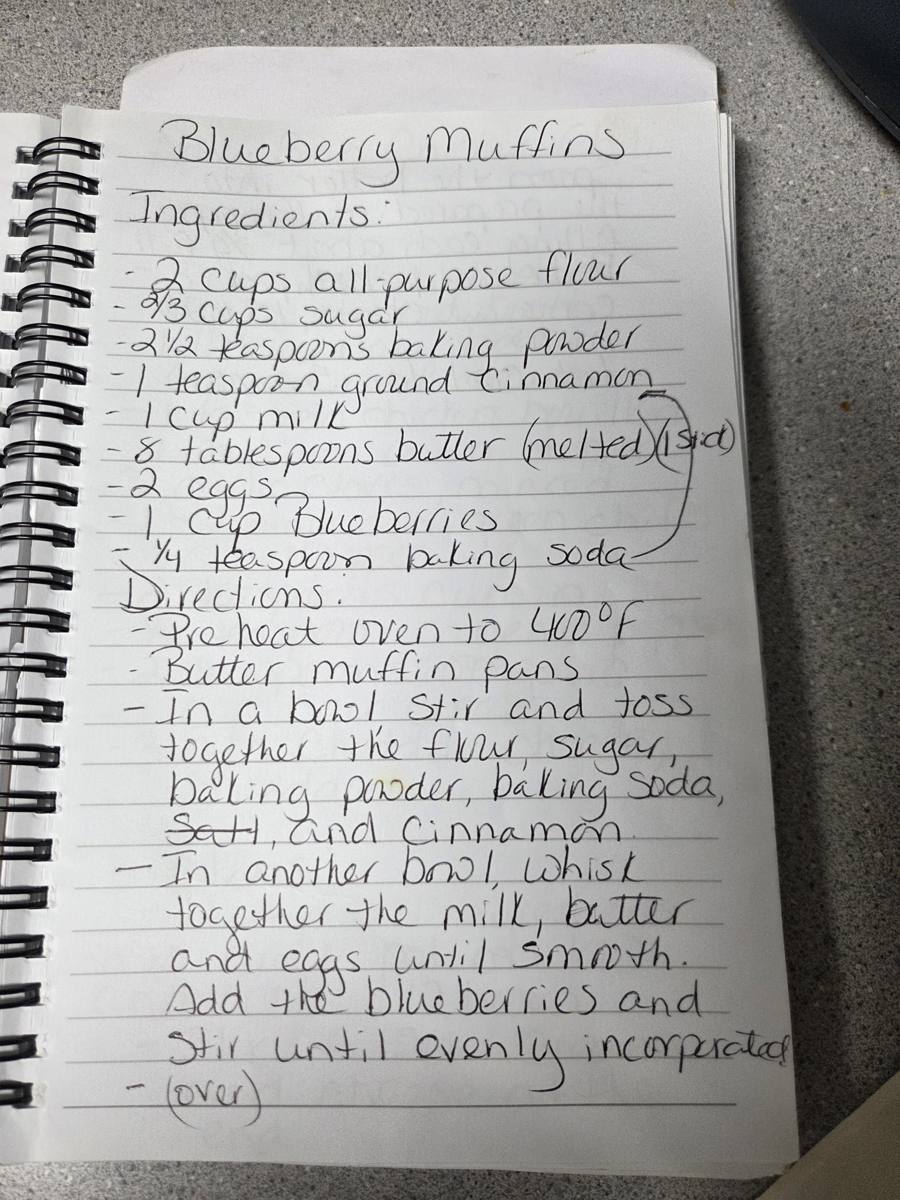 Blueberry Muffins
Ingredients:
- 2 cups all-purpose flour
- 2/3 cups sugar
- 2 1/2 teaspoons baking powder
- 1 teaspoon ground cinnamon
- 1 cup milk
- 8 tablespoons butter (melted)
- 2 eggs
- 1 cup Blueberries
- 1/4 teaspoon baking soda
Directions:
- Preheat oven to 400°F
- Butter muffin pans
- In a bowl stir and toss
together the flour, sugar,
baking powder, baking soda,
Salt, and cinnamon.
- In another bowl, whisk
together the milk, butter
and eggs until smooth.
Add the blueberries and
stir until evenly incorporated
- (over)